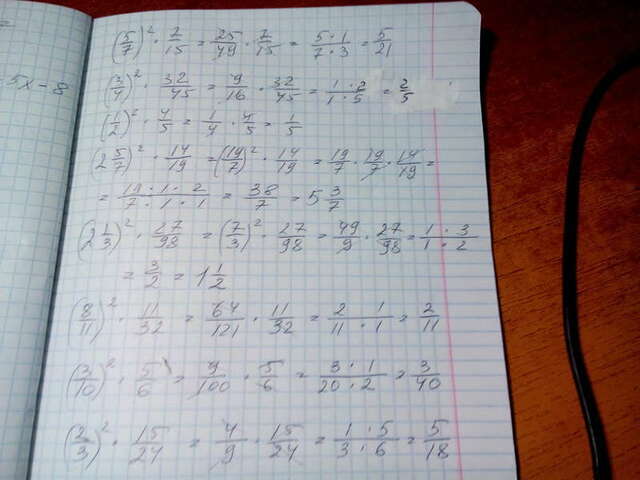 5x - 8
(5/7)² · 7/15 = 25/49 · 7/15 = 5 · 1/7 · 3 = 5/21
(3/4)² · 32/45 = 9/16 · 32/45 = 1 · 2/1 · 5 = 2/5
(1/2)² · 4/5 = 1/4 · 4/5 = 1/5
(2 5/7)² · 14/19 = (19/7)² · 14/19 = 19/7 · 19/7 · 14/19 =
= 19 · 1 · 2/7 · 1 · 1 = 38/7 = 5 3/7
(2 1/3)² · 27/98 = (7/3)² · 27/98 = 49/9 · 27/98 = 1 · 3/1 · 2
= 3/2 = 1 1/2
(8/11)² · 11/32 = 64/121 · 11/32 = 2 · 1/11 · 1 = 2/11
(3/10)² · 5/6 = 9/100 · 5/6 = 3 · 1/20 · 2 = 3/40
(2/3)² · 15/24 = 4/9 · 15/24 = 1 · 5/3 · 6 = 5/18